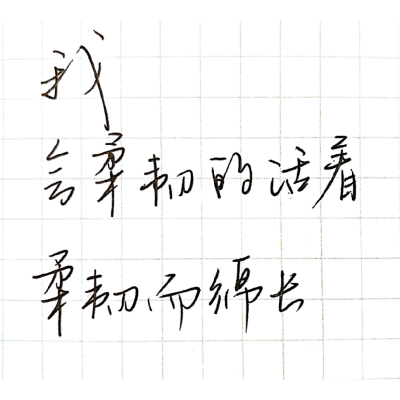 我
会柔韧的活着
柔韧而绵长